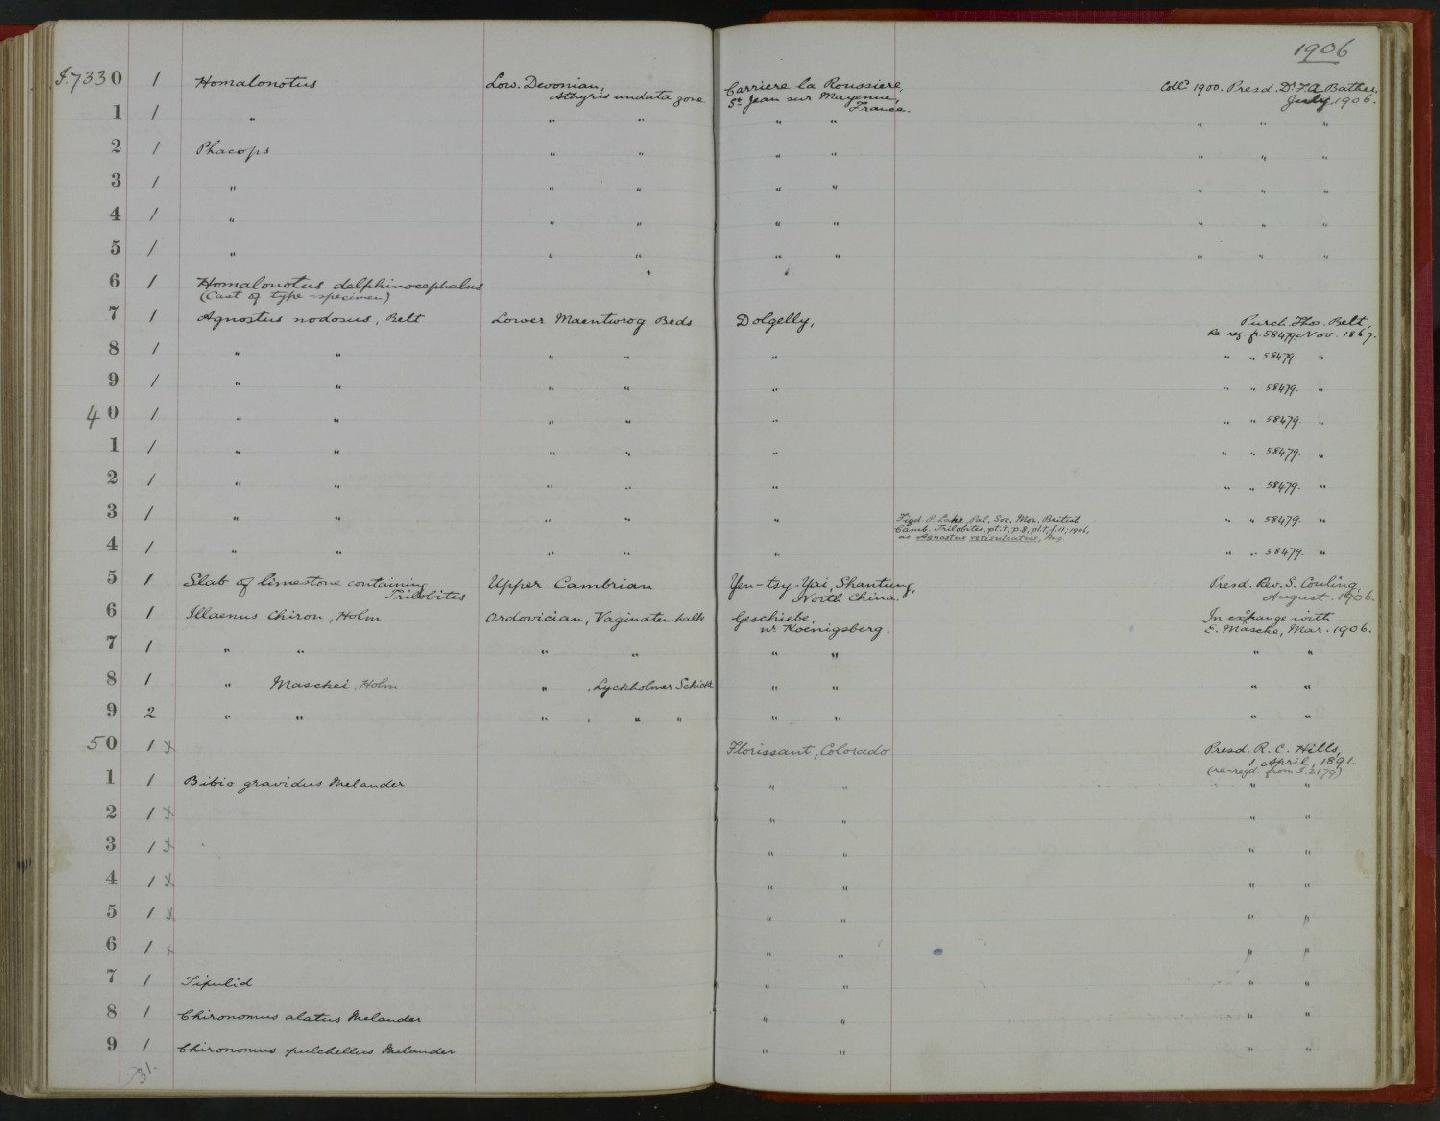 1906
I.7330 1 Homalonotus Low. Devonian, Carriere la Roussiere, Coll. 1900. Presd. Dr. F. A. Bather,
Athyris undata zone St. Jean sur Mayenne, July 1906.
France.
1 1 " " " " " " " "
2 1 Phacops " " " " " " "
3 1 " " " " " " " "
4 1 " " " " " " " "
5 1 " " " " " " " "
6 1 Homalonotus delphinocephalus
(Cast of type-specimen)
7 1 Agnostus nodosus, Belt Lower Maentwrog Beds Dolgelly, Purch. Thos. Belt,
Re reg fr. 58479 Nov. 1867.
8 1 " " " " " " " 58479 "
9 1 " " " " " " " 58479. "
40 1 " " " " " " " 58479. "
1 1 " " " " " " " 58479. "
2 1 " " " " " " " 58479. "
3 1 " " " " " Figd. P. Lake, Pal. Soc. Mon. British " " 58479. "
Camb. Trilobites, pt. 1, p. 8, pl. 1, f. 11; 1906,
as Agnostus reticulatus, Ang.
4 1 " " " " " " " 58479. "
5 1 Slab of limestone containing Upper Cambrian Yen-tsy-Yai, Shantung, Presd. Rev. S. Couling,
Trilobites North China. August 1906.
6 1 Illaenus Chiron, Holm Ordovician, Vaginaten kalk Geschiebe, In exchange with
nr. Koenigsberg. E. Mascke, Mar. 1906.
7 1 " " " " " " " "
8 1 " Maschei, Holm " , Lyckholmer Schicht " " " "
9 2 " " " , " " " " " "
50 1 x Florissant, Colorado Presd. R. C. Hills,
1 April, 1891.
(re-regd. from I.2179)
1 1 Bibio gravidus Melander " " " "
2 1 x " " " "
3 1 x " " " "
4 1 x " " " "
5 1 x " " " "
6 1 x " "
7 1 Tipulid " " " "
8 1 Chironomus alatus Melander " " " "
9 1 Chironomus pulchellus Melander " " " "
31.